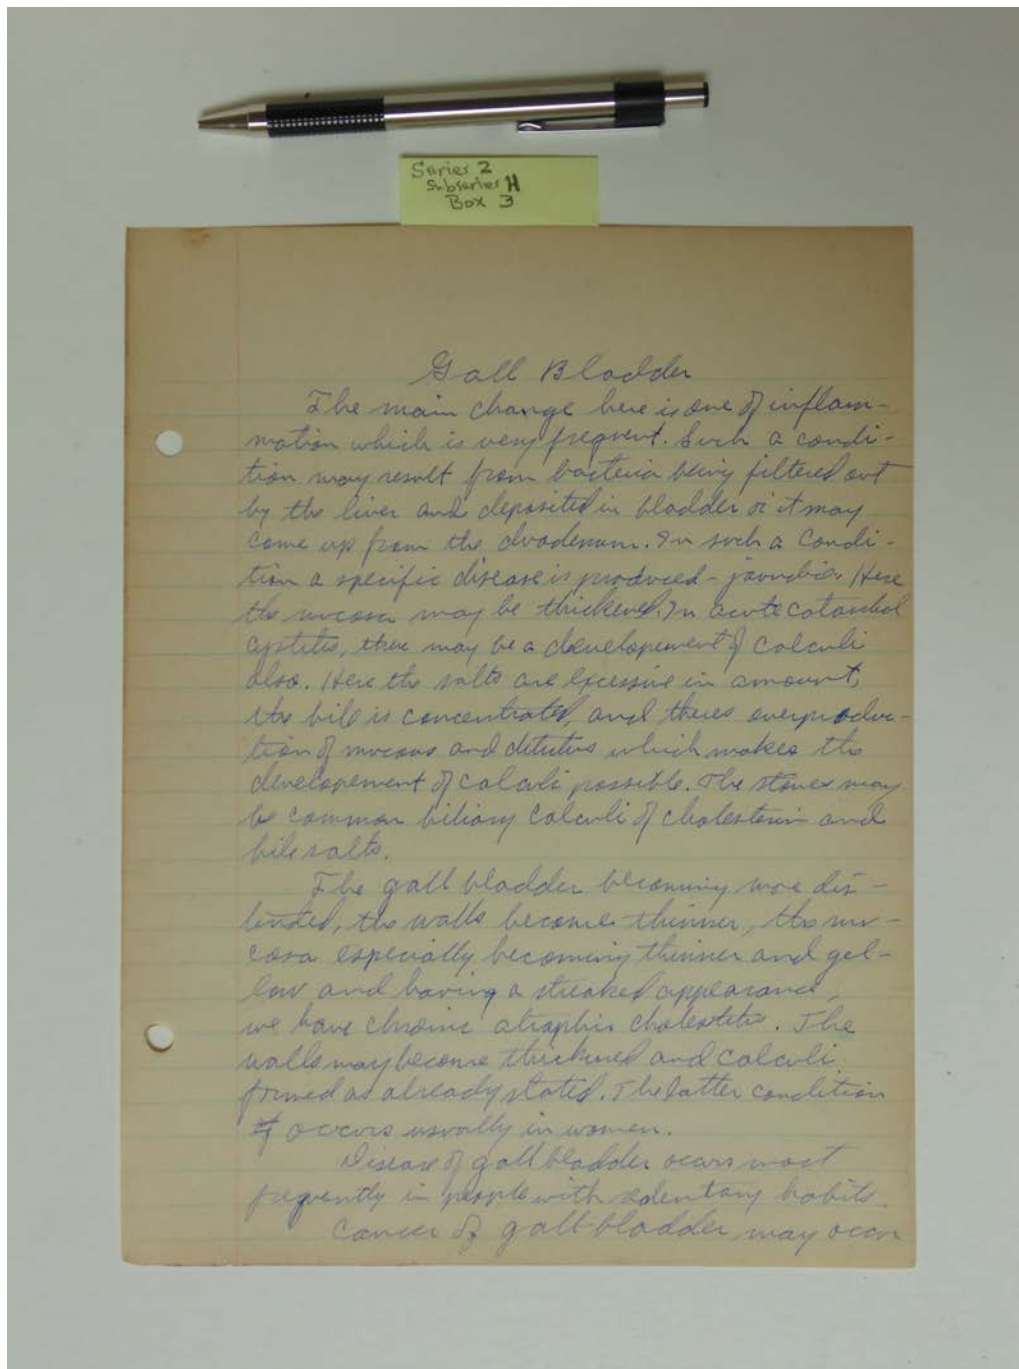 Series 2
Subseries H
Box 3
Gall Bladder
The main change here is one of inflam-
mation which is very frequent. Such a condi-
tion may result from bacteria being filtered out
by the liver and deposited in bladder or it may
come up from the duodenum. In such a condi-
tion a specific disease is produced - jaundice. Here
the mucosa may be thickened. In acute catarrhal
cystitis, there may be a developement of calculi
also. Here the salts are excessive in amount,
the bile is concentrated, and theres overproduc-
tion of mucous and ditritus which makes the
developement of calculi possible. The stones may
be common biliary calculi of cholesterin and
bile salts.
The gall bladder becoming more dis-
tended, the walls become thinner, the mu-
cosa especially becoming thinner and yel-
low and having a streaked appearance,
we have chronic atrophic. The
walls may become thickened and calculi
formed as already stated. The latter condition
occurs usually in women.
Disease of gall bladder occurs most
frequently in people with sedentary habits.
Cancer of gall-bladder may occur